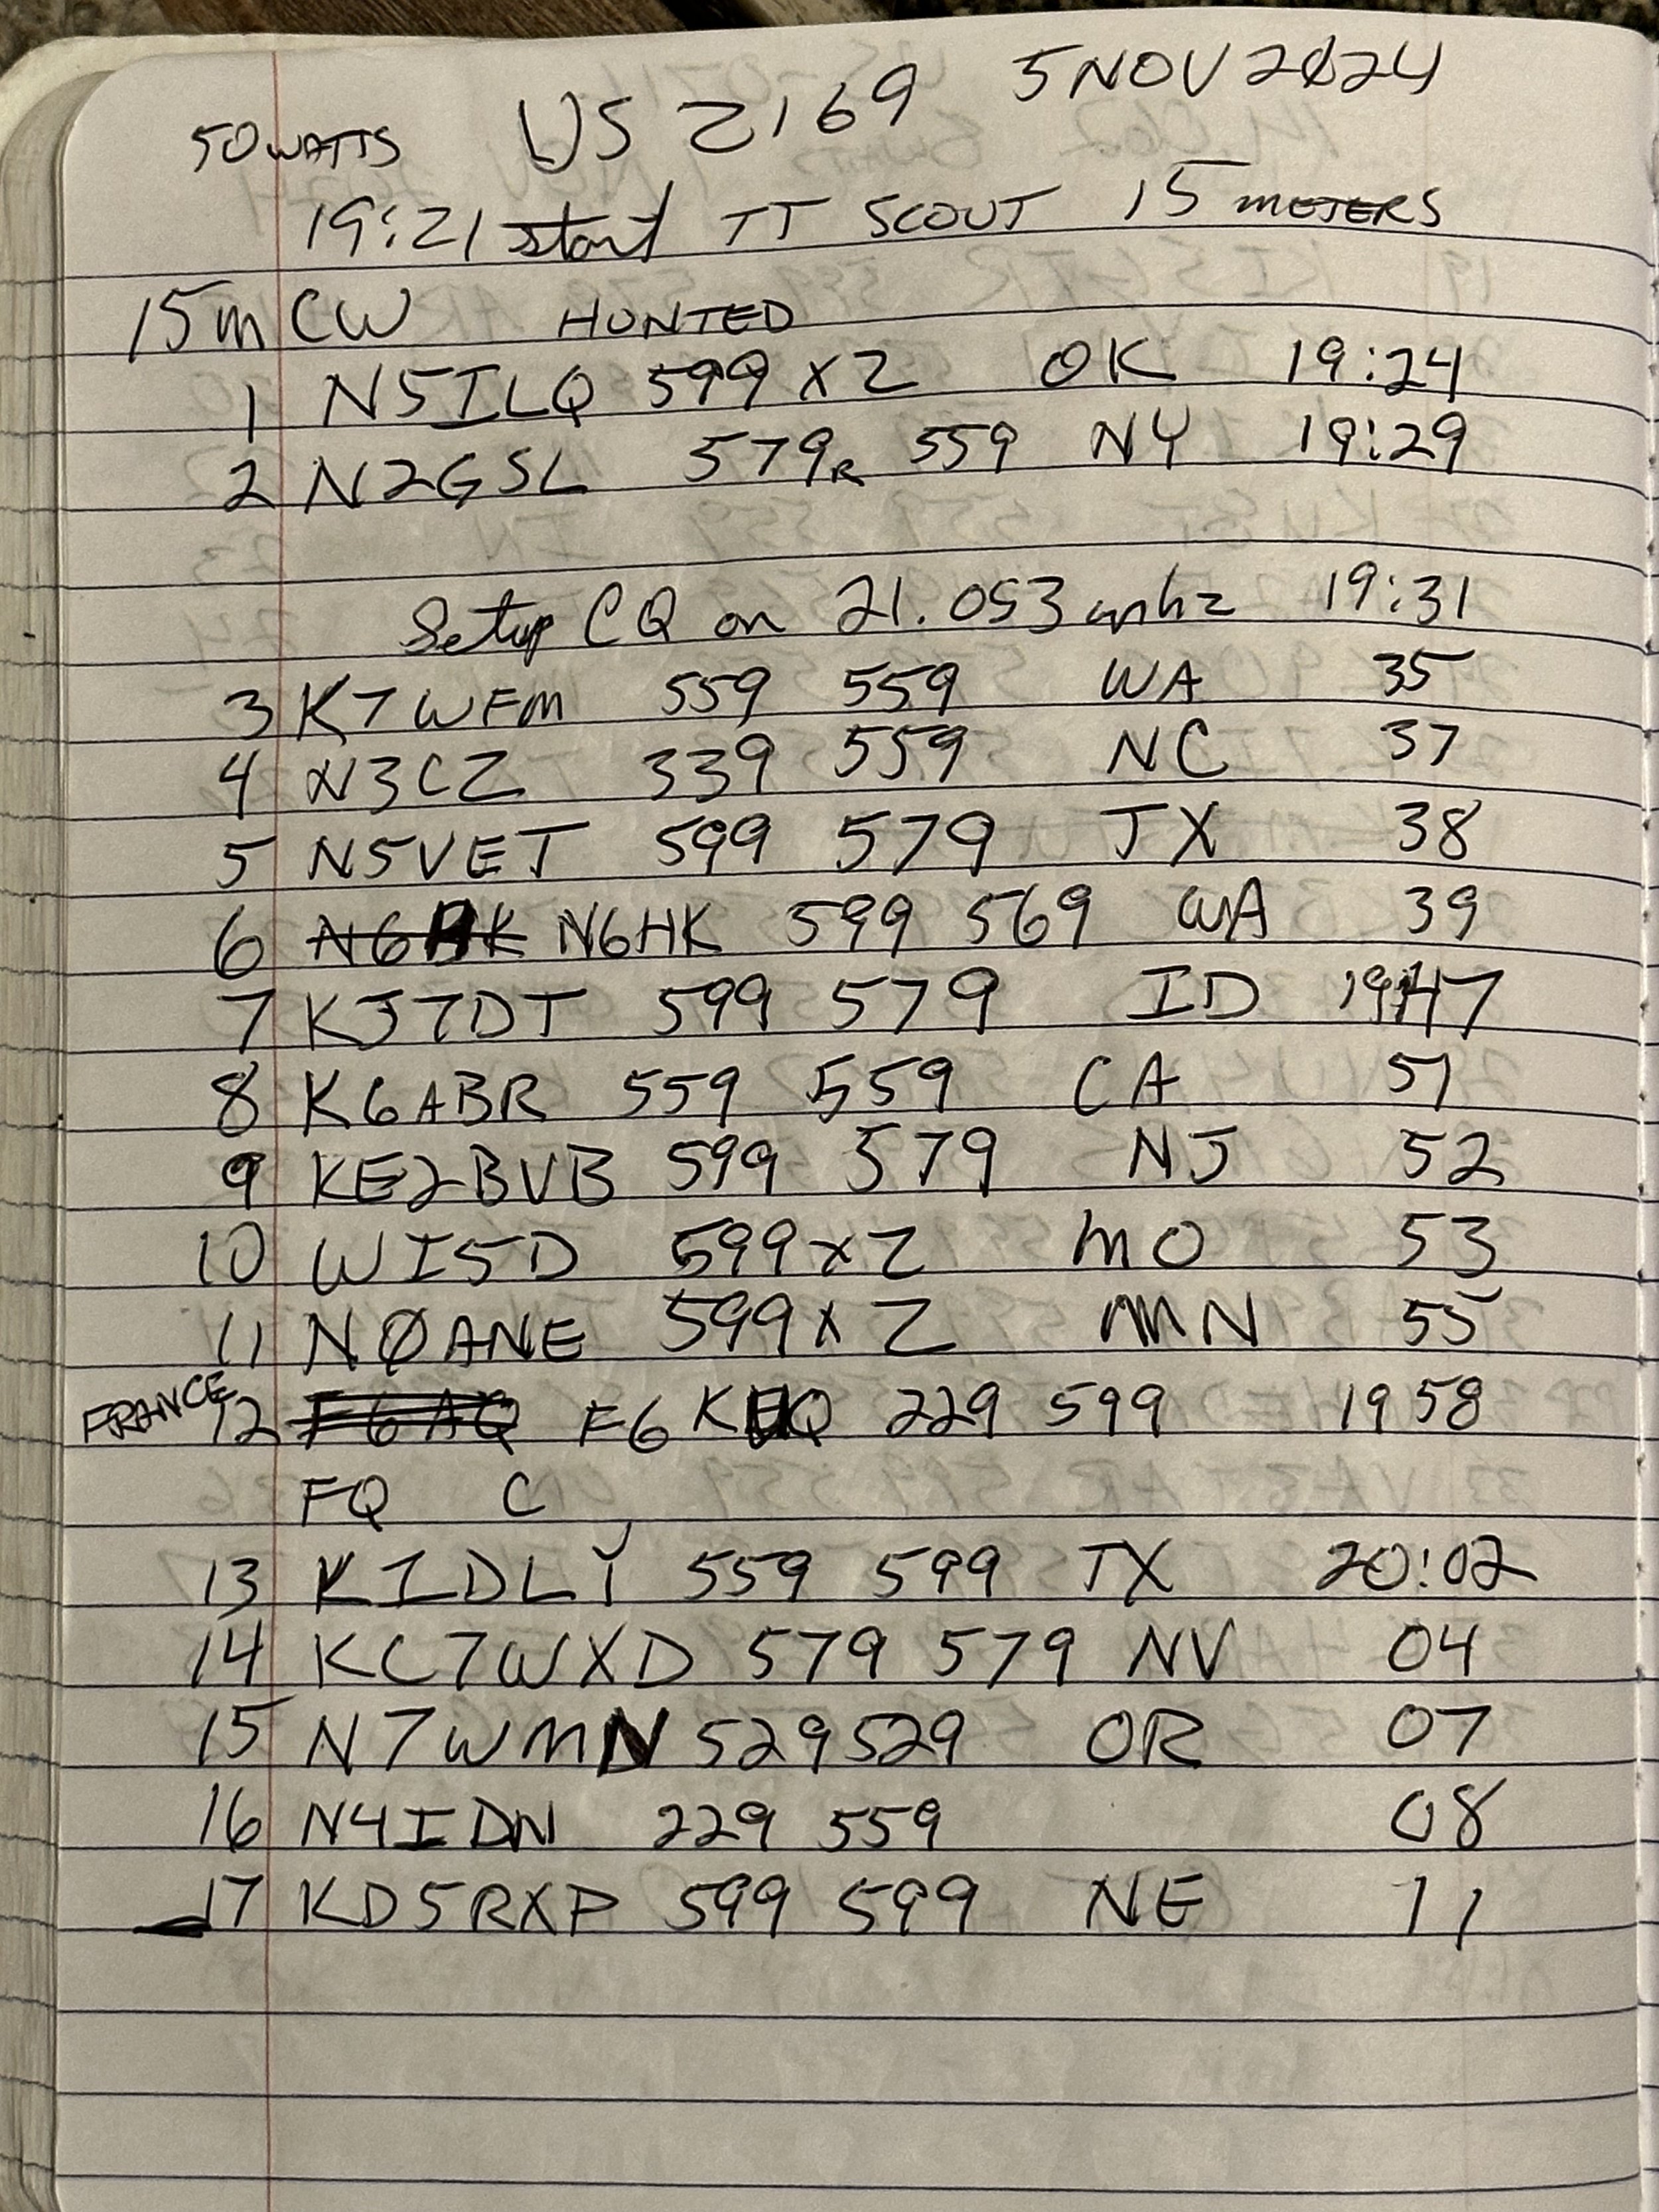 5 NOV 2024
50 WATTS US 2169
19:21 start TT SCOUT 15 METERS
15m CW HUNTED
1 N5ILQ 599 X 2 OK 19:24
2 N2GSL 579R 559 NY 19:29
Setup CQ on 21.053 mhz 19:31
3 K7WFM 559 559 WA 35
4 N3CZ 339 559 NC 37
5 N5VET 599 579 TX 38
6 N6HK 599 569 WA 39
7 KJ7DT 599 579 ID 1947
8 K6ABR 559 559 CA 51
9 KE2BVB 599 579 NJ 52
10 WI5D 599 X 2 MO 53
11 NØANE 599 X 2 MN 55
FRANCE 12 F6AQ 229 599 1958
FQ C
13 K1DLY 559 599 TX 20:02
14 KC7WXD 579 579 NV 04
15 N7WMN 529 529 OR 07
16 N4IDN 229 559 08
17 KD5RXP 599 599 NE 11